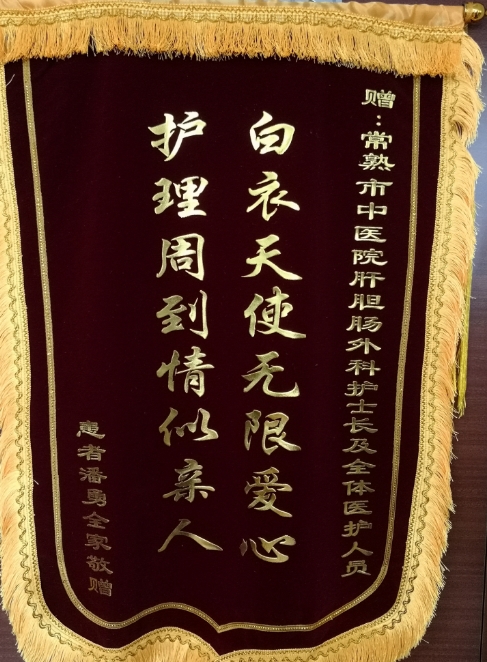 赠：常熟市中医院肝胆肠外科护士长及全体医护人员
白衣天使无限爱心
护理周到情似亲人
患者潘勇全家敬赠